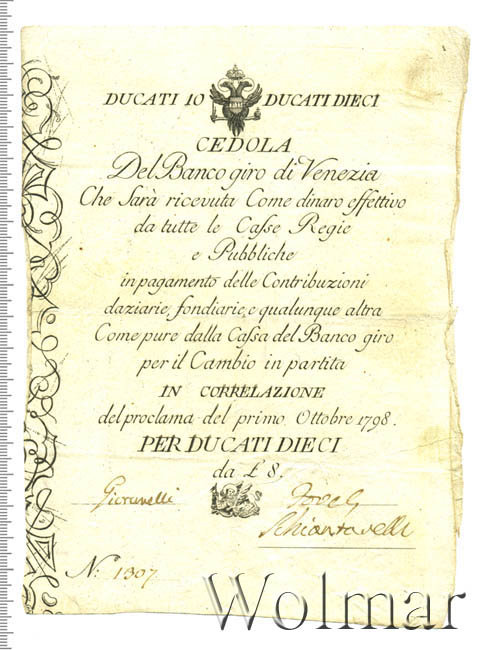 DUCATI 10 DUCATI DIECI
CEDOLA
Del Banco giro di Venezia
Che Sarà ricevuta Come dinaro effettivo
da tutte le Casse Regie
e Pubbliche
in pagamento delle Contribuzioni
daziarie, fondiarie, e qualunque altra
Come pure dalla Cassa del Banco giro
per il Cambio in partita
IN CORRELAZIONE
del proclama del primo Ottobre 1798.
PER DUCATI DIECI
da £ 8.
Giovanelli
Schiantarelli
N.º 1307
Wolmar